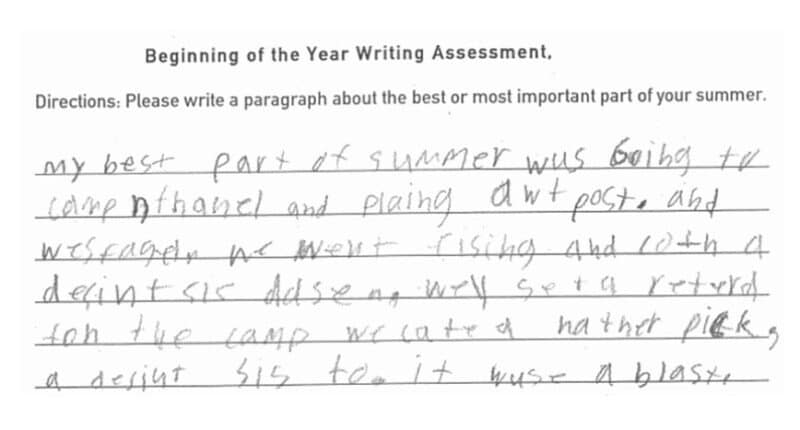 Beginning of the Year Writing Assessment,
Directions: Please write a paragraph about the best or most important part of your summer.
my best part of summer wus Goihg to
camp nthanel and plaing awt post. and
we went fising and coth a
desint sis
set a reterd
foh the camp we cated a nather pick,
a desint sis to. it wuse a blast.